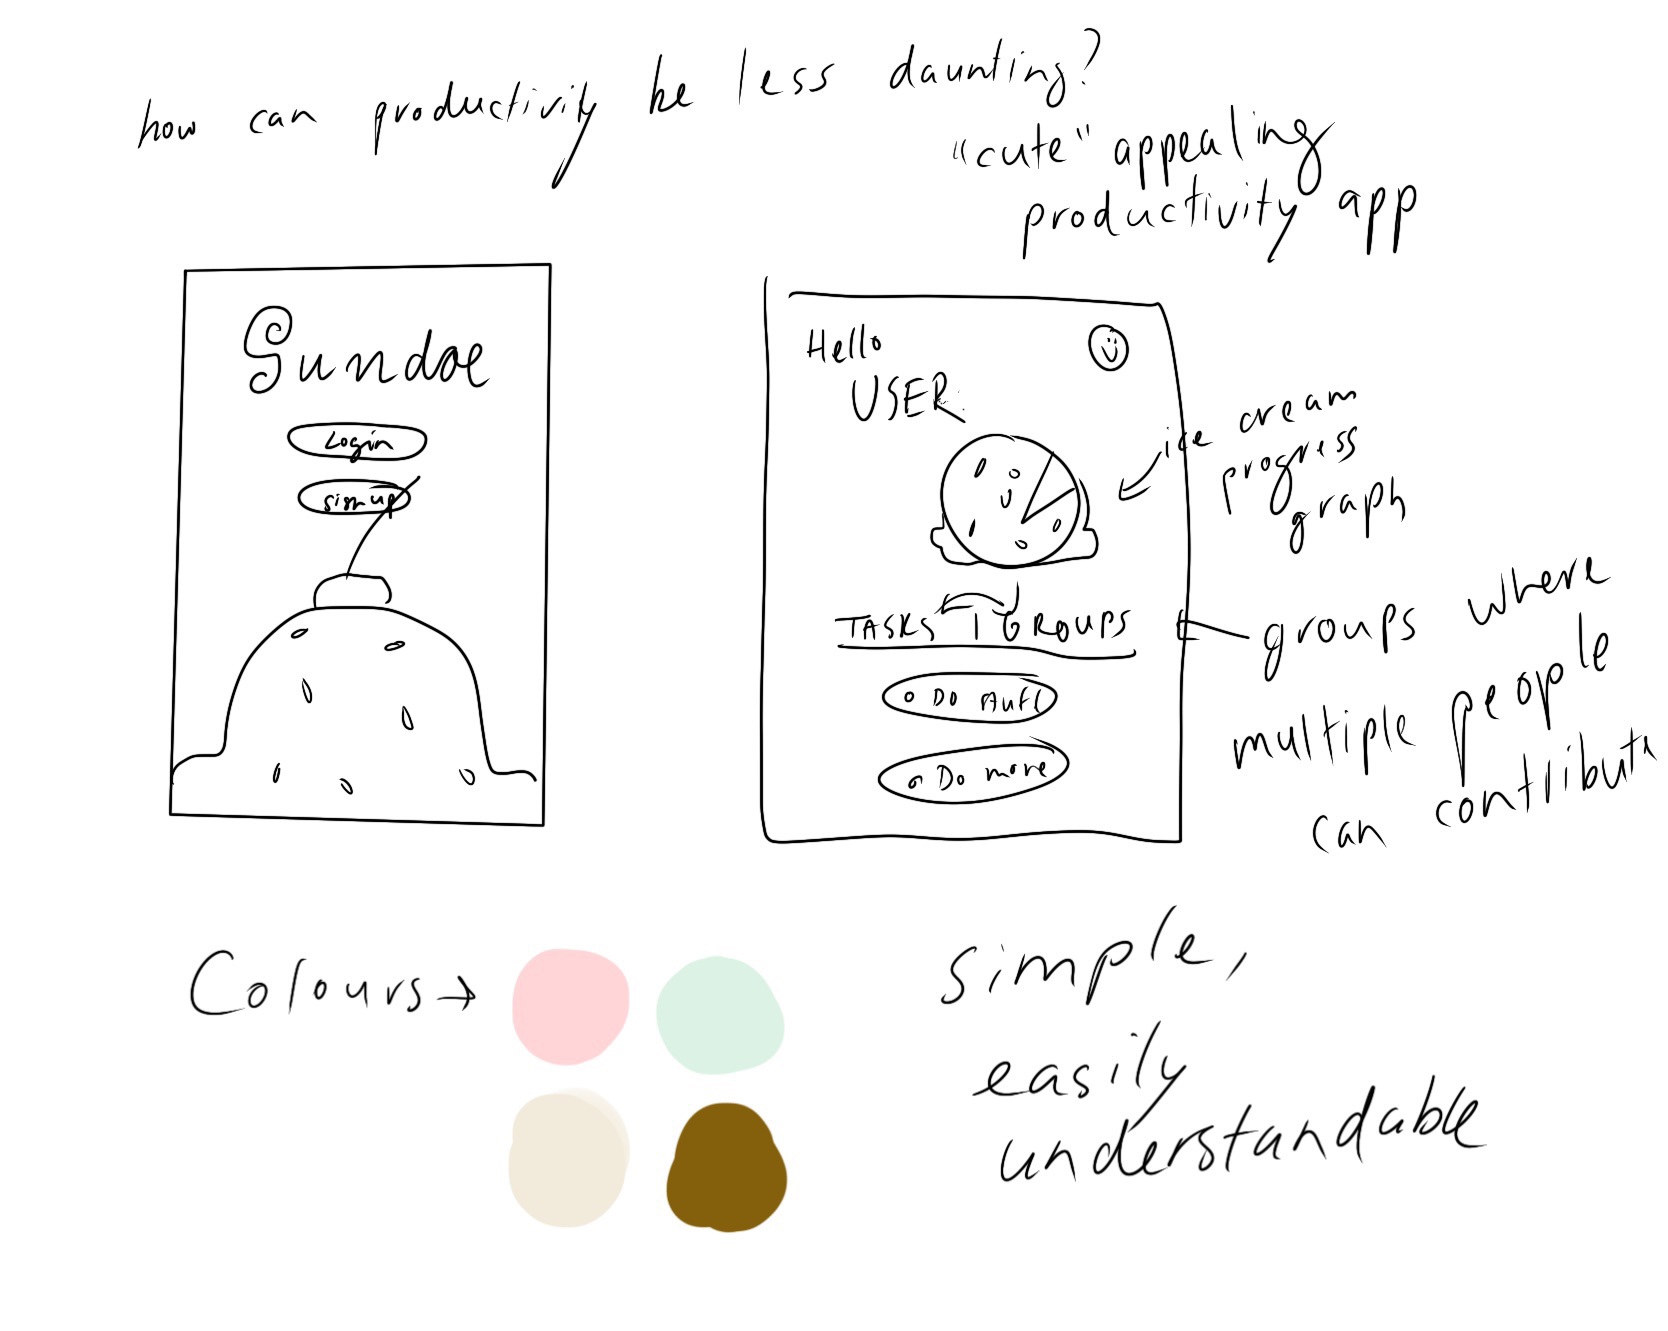 how can productivity be less daunting?
"cute" appealing
productivity app
Sundae
Login
sign up
Hello
USER
ice cream
progress
graph
TASKS | GROUPS
Do stuff
Do more
groups where
multiple people
can contribute
Colours →
simple,
easily
understandable